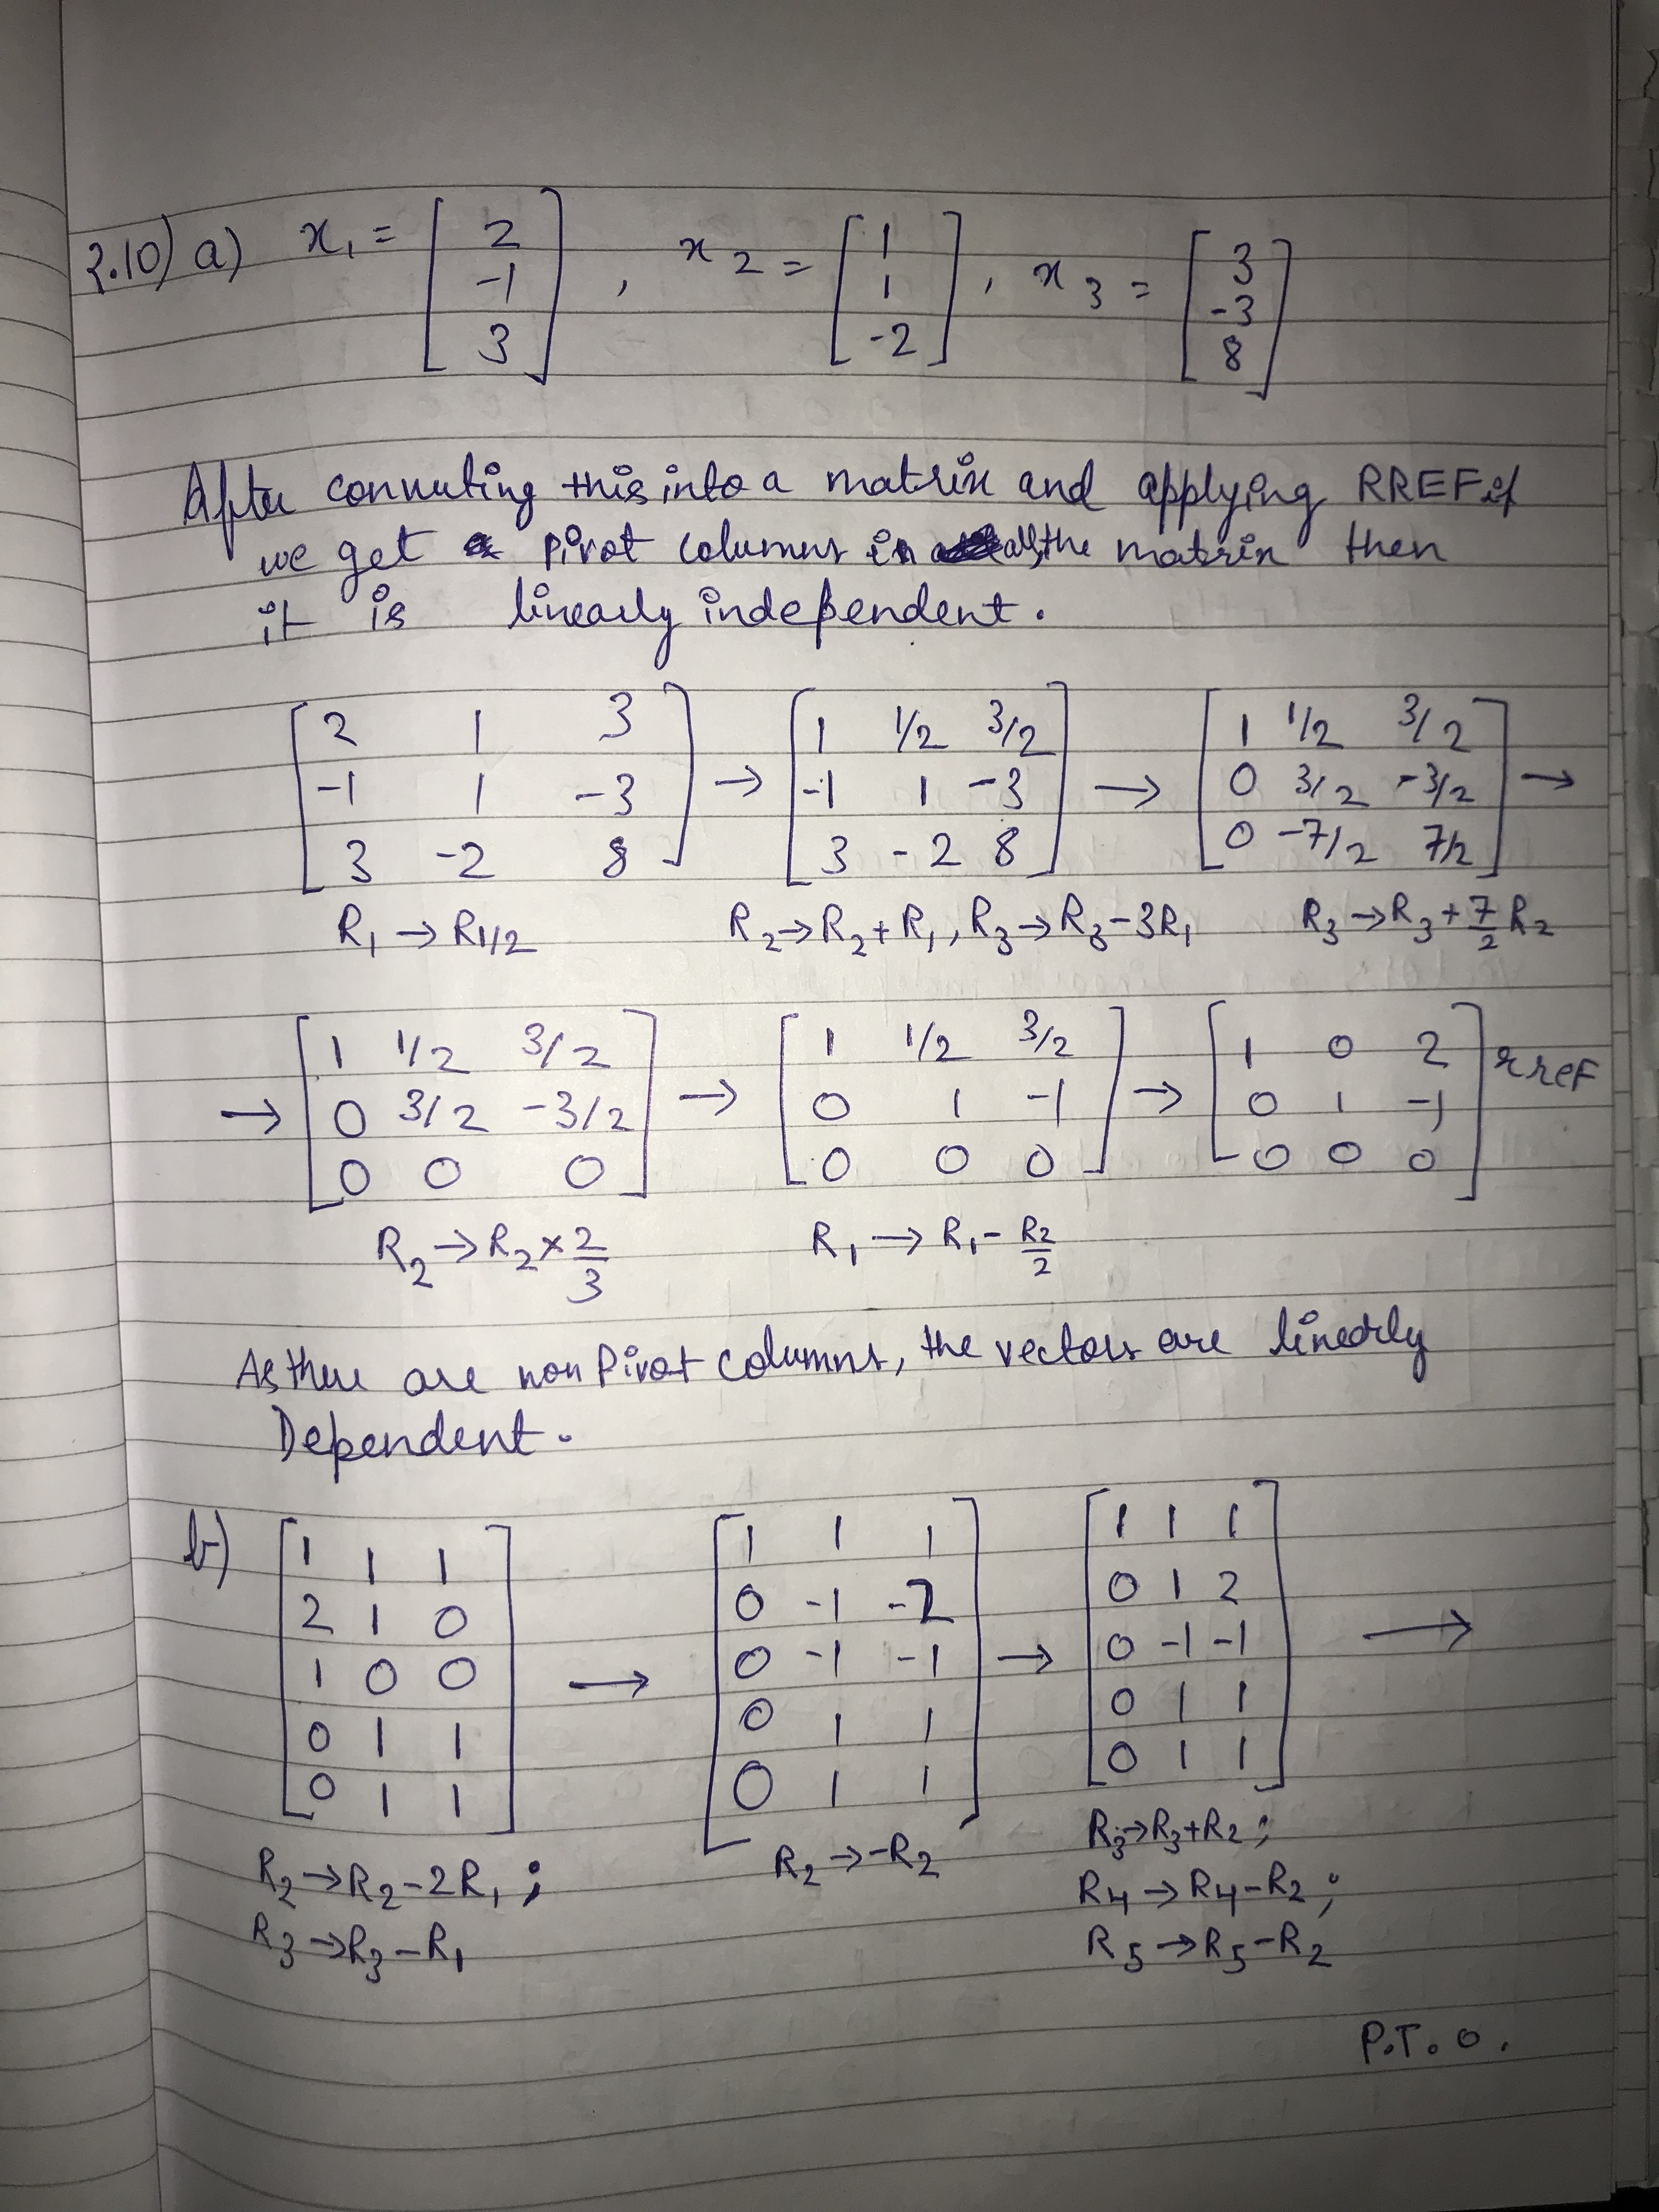 2.10) a) x₁ = [2 -1 3], x₂ = [1 1 -2], x₃ = [3 -3 8]
After converting this into a matrix and applying RREF if
we get pivot columns in all the matrix then
it is linearly independent.
[2 1 3; -1 1 -3; 3 -2 8] → [1 1/2 3/2; -1 1 -3; 3 -2 8] → [1 1/2 3/2; 0 3/2 -3/2; 0 -7/2 7/2] →
R₁ → R₁/2 R₂→R₂+R₁, R₃→R₃-3R₁ R₃→R₃+7/2 R₂
→ [1 1/2 3/2; 0 3/2 -3/2; 0 0 0] → [1 1/2 3/2; 0 1 -1; 0 0 0] → [1 0 2; 0 1 -1; 0 0 0] rref
R₂→R₂×2/3 R₁→R₁-R₂/2
As there are non Pivot columns, the vectors are linearly
Dependent.
b) [1 1 1; 2 1 0; 1 0 0; 0 1 1; 0 1 1] → [1 1 1; 0 -1 -2; 0 -1 -1; 0 1 1; 0 1 1] → [1 1 1; 0 1 2; 0 -1 -1; 0 1 1; 0 1 1] →
R₂→R₂-2R₁; R₂→-R₂ R₃→R₃+R₂;
R₃→R₃-R₁ R₄→R₄-R₂;
R₅→R₅-R₂
P.T.O.